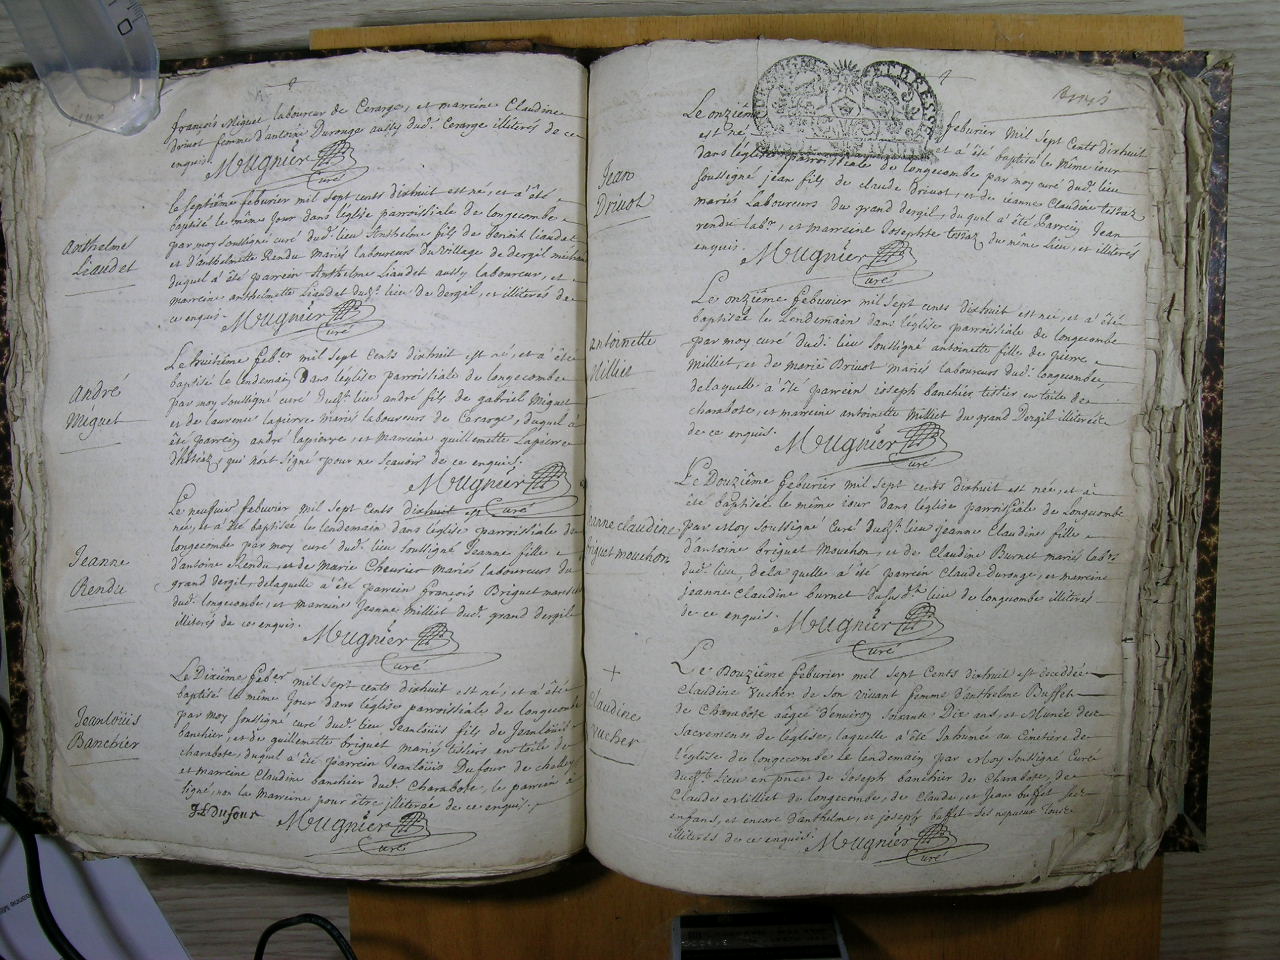 françois Miguet laboureur de Cerarge, et marreine Claudine
Druot femme d'antoine Duronge aussy dud. Cerarge illiterés de ce
enquis. Mugnier
Curé
Anthelme
Liaudet
Le septiême feburier mil sept cents dixhuit est né, et a été
baptisé le même Jour dans leglise parroissiale de longecombe
par moy soussigné curé dud. lieu Anthelme fils de Benoit Liaudet
et d'anthelmette Rendu mariés laboureurs du village de dergil
duquel a été parrein Anthelme Liaudet aussy laboureur, et
marreine anthelmette Liaudet dud. lieu de dergil, et illiterés de
ce enquis. Mugnier
Curé
André
Miguet
Le huitiême feber mil sept cents dixhuit est né, et a été
baptisé le lendemain Dans l'église parroissiale de longecombe
par moy soussigné curé dud. lieu andré fils de gabriel Miguet
et de laurence lapierre mariés laboureurs de Cerarge, duquel a
été parrein andré lapierre, et Marreine guillemette Lapierre
qui n'ont signé pour ne sçavoir de ce enquis.
Mugnier
Curé
Jeanne
Rendu
Le neufuie feburier mil sept Cents dixhuit est
née, et a été baptisée le lendemain dans l'église parroissiale de
longecombe par moy curé dud. lieu soussigné Jeanne fille
d'antoine Rendu, et de Marie Cheurier mariés laboureurs du
grand dergil, delaquelle a été parrein françois Briguet
dud. longecombe, et marreine Jeanne Milliet dud. grand dergil
illiterés de ce enquis. Mugnier
Curé
Jeanloüis
Banchier
Le Dixiême feber mil sept cents dixhuit est né, et a été
baptisé le même Jour dans leglise parroissiale de longecombe
par moy soussigné curé dud. lieu Jeanloüis fils de Jeanloüis
banchier, et de guillemette briguet mariés tistiers en toile de
charabote, duquel a été parrein Jeanloüis Dufour de
et marreine Claudine banchier dud. Charabote, le parrein a
signé, non la Marreine pour être illiterée de ce enquis.
JL Dufour Mugnier
Curé
Jean
Druot
Le onziême feburier Mil Sept Cents dixhuit
est né et a été baptisé le même iour
dans l'église parroissiale de longecombe par moy curé dud. lieu
soussigné jean fils de claude Druot, et de ieanne Claudine
mariés Laboureurs du grand dergil, duquel a été Parrein Jean
rendu labr., et marreine Iosephte du même Lieu, et illiterés
enquis. Mugnier
Curé
Antoinette
Milliet
Le onziême feburier mil sept cents dixhuit est née, et a été
baptisée le Lendemain dans l'église parroissiale de longecombe
par moy curé dud. lieu soussigné antoinette fille de pierre
Milliet, et de marie Druot mariés laboureurs dud. longecombe,
delaquelle a été parrein ioseph banchier tistier en toile de
charabote, et marreine antoinette Milliet du grand Dergil illiterés
de ce enquis. Mugnier
Curé
Jeanne claudine
briguet mouchon
Le Douziême feburier mil sept cents dixhuit est née, et a
été baptisée le même iour dans l'église parroissiale de Longecombe
par Moy Soussigné Curé dud. lieu jeanne Claudine fille
d'antoine briguet Mouchon, et de Claudine Burnet mariés labrs.
dud. lieu, dela quelle a été parrein Claude Duronge, et marreine
jeanne Claudine burnet lieu de longecombe illiterés
de ce enquis. Mugnier
Curé
+
Claudine
Vucher
Le Douziême feburier mil sept Cents dixhuit est decedée
Claudine Vucher de son viuant femme d'anthelme Buffet
de Charabote aâgée d'enuiron Soixante Dix ans, et Munie des
Sacremens de l'église, laquelle a été Inhumée au Cimetière de
l'église de longecombe le lendemain par Moy soussigné Curé
Lieu en pnce de Ioseph banchier de Charabote, de
Claude Milliet de longecombe, de Claude, et Jean buffet ses
enfans, et encore d'anthelme, et joseph buffet ses nepueux Tous
illiterés de ce enquis. Mugnier
Curé